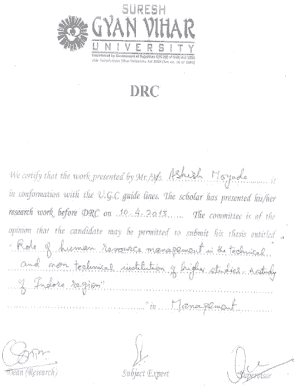 SURESH
GYAN VIHAR
UNIVERSITY
DRC
We certify that the work presented by Mr./Ms. Ashish Moyade it
in conformation with the U.G.C guide lines. The scholar has presented his/her
research work before DRC on 10.4.2013...... The committee is of the
opinion that the candidate may be permitted to submit his thesis entitled
"Role of human resource management in the technical
and non technical institution of higher studies. A study
of Indore region"
"in Management
Dean (Research) Subject Expert Supervisor